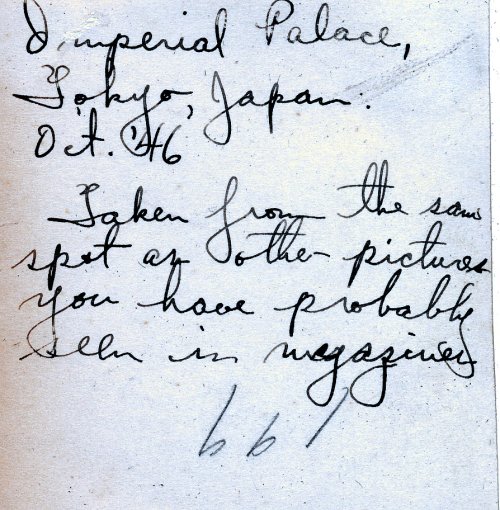 Imperial Palace,
Tokyo, Japan.
Oct. '46
Taken from the same
spot as other pictures
you have probably
seen in magazines
661